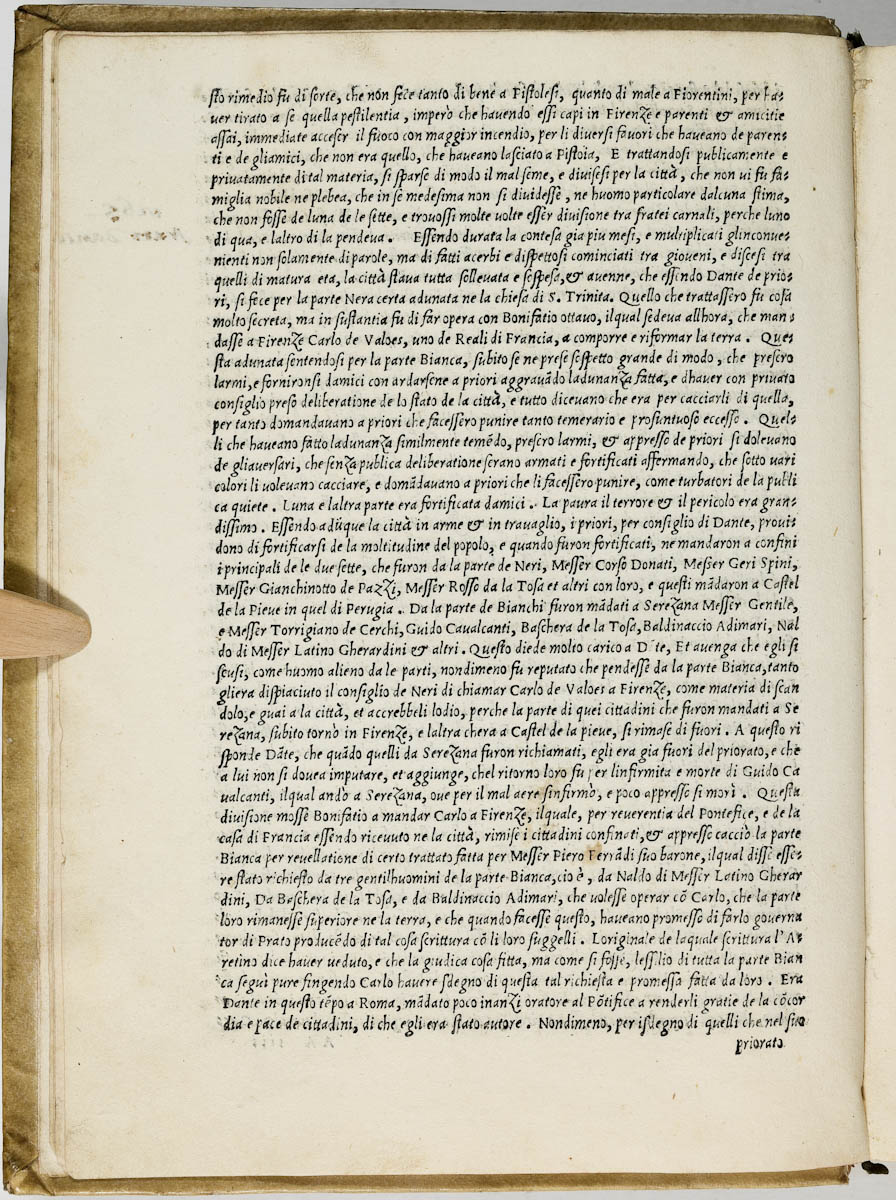 sto rimedio fu di sorte, che non fece tanto di bene a Pistolesi, quanto di male a Fiorentini, per ha⸗
ver tirato a se quella pestilentia, imperò che havendo essi capi in Firenze e parenti & amicitie
assai, immediate acceser il fuoco con maggior incendio, per li diversi favori che haveano de paren⸗
ti e de gliamici, che non era quello, che haveano lasciato a Pistoia, E trattandosi publicamente e
privatamente di tal materia, si sparse di modo il mal seme, e divisesi per la città, che non vi fu fa⸗
miglia nobile ne plebea, che in se medesima non si dividesse, ne huomo particolare dalcuna stima,
che non fosse de luna de le sette, e trovossi molte volte esser divisione tra fratei carnali, perche luno
di qua, e laltro di la pendeva. Essendo durata la contesa gia piu mesi, e multiplicati glinconve⸗
nienti non solamente di parole, ma di fatti acerbi e dispettosi cominciati tra gioveni, e discesi tra
quelli di matura eta, la città stava tutta sollevata e sospesa, & avenne, che essendo Dante de prio⸗
ri, si fece per la parte Nera certa adunata ne la chiesa di S. Trinita. Quello che trattassero fu cosa
molto secreta, ma in sustantia fu di far opera con Bonifatio ottavo, ilqual sedeva allhora, che man⸗
dasse a Firenze Carlo de Valoes, uno de Reali di Francia, a comporre e riformar la terra. Que⸗
sta adunata sentendosi per la parte Bianca, subito se ne prese sospetto grande di modo, che presero
larmi, e fornironsi damici con andarsene a priori aggravãdo ladunanza fatta, e dhaver con privato
consiglio preso deliberatione de lo stato de la città, e tutto dicevano che era per cacciarli di quella,
per tanto domandavano a priori che facessero punire tanto temerario e prosuntuoso eccesso. Quel⸗
li che haveano fatto ladunanza similmente temẽdo, presero larmi, & appresso de priori si dolevano
de gliaversari, che senza publica deliberatione serano armati e fortificati affermando, che sotto vari
colori li volevano cacciare, e domãdavano a priori che li facessero punire, come turbatori de la publi
ca quiete. Luna e laltra parte era fortificata damici. La paura il terrore & il pericolo era gran⸗
dissimo. Essendo adũque la città in arme & in travaglio, i priori, per consiglio di Dante, provi⸗
dono di fortificarsi de la moltitudine del popolo, e quando furon fortificati, ne mandaron a confini
i principali de le due sette, che furon da la parte de Neri, Messer Corso Donati, Messer Geri Spini,
Messer Gianchinotto de Pazzi, Messer Rosso da la Tosa et altri con loro, e questi mãdaron a Castel
de la Pieve in quel di Perugia. Da la parte de Bianchi furon mãdati a Serezana Messer Gentile,
e Messer Torrigiano de Cerchi, Guido Cavalcanti, Baschera de la Tosa, Baldinaccio Adimari, Nal
do di Messer Latino Gherardini & altri. Questo diede molto carico a Dante, Et avenga che egli si
scusi, come huomo alieno da le parti, nondimeno fu reputato che pendesse da la parte Bianca, tanto
gliera dispiaciuto il consiglio de Neri di chiamar Carlo de Valoes a Firenze, come materia di scan
dolo, e guai a la città, et accrebbeli lodio, perche la parte di quei cittadini che furon mandati a Se
rezana, subito tornò in Firenze, e laltra chera a Castel de la pieve, si rimase di fuori. A questo ri
sponde Dãte, che quãdo quelli da Serezana furon richiamati, egli era gia fuori del priorato, e che
a lui non si dovea imputare, et aggiunge, chel ritorno loro fu per linfirmita e morte di Guido Ca
valcanti, ilqual andò a Serezana, ove per il mal aere sinfirmò, e poco appresso si morì. Questa
divisione mosse Bonifatio a mandar Carlo a Firenze, ilquale, per reverentia del Pontefice, e de la
casa di Francia essendo ricevuto ne la città, rimise i cittadini confinati, & appresso cacciò la parte
Bianca per revellatione di certo trattato fatta per Messer Piero Ferrãdi suo barone, ilqual disse esse⸗
re stato richiesto da tre gentilhuomini de la parte Bianca, cio è, da Naldo di Messer Latino Gherar
dini, Da Baschera de la Tosa, e da Baldinaccio Adimari, che volesse operar cõ Carlo, che la parte
loro rimanesse superiore ne la terra, e che quando facesse questo, haveano promesso di farlo governa
tor di Prato producẽdo di tal cosa scrittura cõ li loro suggelli. Loriginale de laquale scrittura l'A⸗
retino dice haver veduto, e che la giudica cosa fitta, ma come si fosse, lessilio di tutta la parte Bian
ca seguì pure fingendo Carlo havere sdegno di questa tal richiesta e promessa fatta da loro. Era
Dante in questo tẽpo a Roma, mãdato poco inanzi oratore al Põtifice a renderli gratie de la cõcor
dia e pace de cittadini, di che egli era stato autore. Nondimeno, per isdegno di quelli che nel suo
priorato